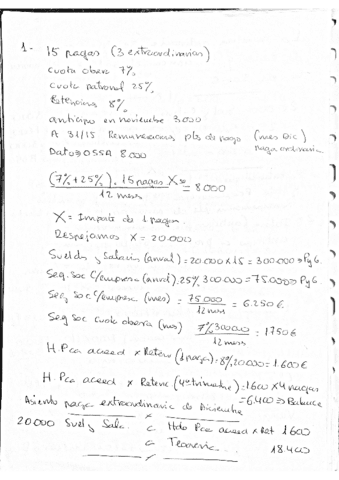 1- 15 pagas (3 extraordinarias)
cuota obrera 7%
cuota patronal 25%
Retenciones 8%
anticipo en noviembre 3.000
A 31/15 Remuneraciones pts de pago (mes Dic)
Paga ordinaria
Dato ⇒ OSSA 8.000
(7%+25%) · 15 pagas X = 8000
12 meses
X = Importe de 1 paga
Despejamos X = 20.000
Sueldos y Salarios (anual) = 20.000 x 15 = 300.000 ⇒ PyG.
Seg. Soc C/empresa (anual) 25% 300.000 = 75.000 ⇒ PyG.
Seg Soc C/empresa (mes) = 75.000 = 6.250€
12 meses
Seg Soc cuota obrera (mes) 7% 300.000 = 1750€
12 meses
H. Pca acreed x Retenc (1 paga) = 8% 20.000 = 1.600€
H. Pca acreed x Retenc (4º trimestre) = 1.600 x 4 pagas
= 6.400 ⇒ Balance
Asiento paga extraordinaria de Diciembre
x
20.000 Suel y Sala. a Hda Pca acreed x Ret 1.600
a Tesorería... 18.400
x